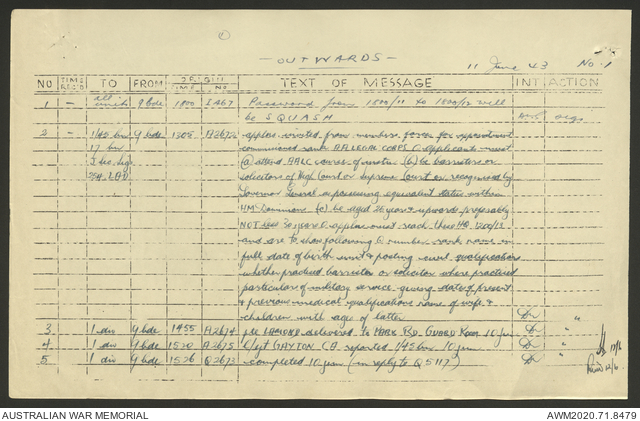 ①
— OUTWARDS —
11 June 43 No-1
NO TIME REC'D TO FROM ORIGIN TIME NO TEXT OF MESSAGE INT ACTION
1 - all units 9 bde 1800 Password from 1800/11 to 1800/12 will
be SQUASH
2 - 1/45 bn 9 bde 1305 applns invited from members force for appointment
17 bn commissioned rank AALEGAL CORPS applicants must
(a) attend AALC course of instn (b) be barristers or
solicitors of High Court or Supreme Court or recognised by
Governor General as possessing equivalent status within
HM Dominions (c) be aged 26 years & upwards preferably
NOT less 30 years applns must reach these HQ 1200/13
and are to show following number rank name in
full date of birth unit & posting civil qualifications
whether practised barrister or solicitor where practised
particulars of military service giving dates of present
& previous medical qualifications name of wife &
children with ages of latter
3 1 div 9 bde 1455 A2674 pte delivered to PARK RD. GUARD ROOM 10 jun
4 1 div 9 bde 1520 A2675 l/sgt GAYTON CA reported 1/45 bn 10 jun
5 1 div 9 bde 1526 Q2673 completed 10 jun (in reply to Q5117)
AUSTRALIAN WAR MEMORIAL
AWM2020.71.8479